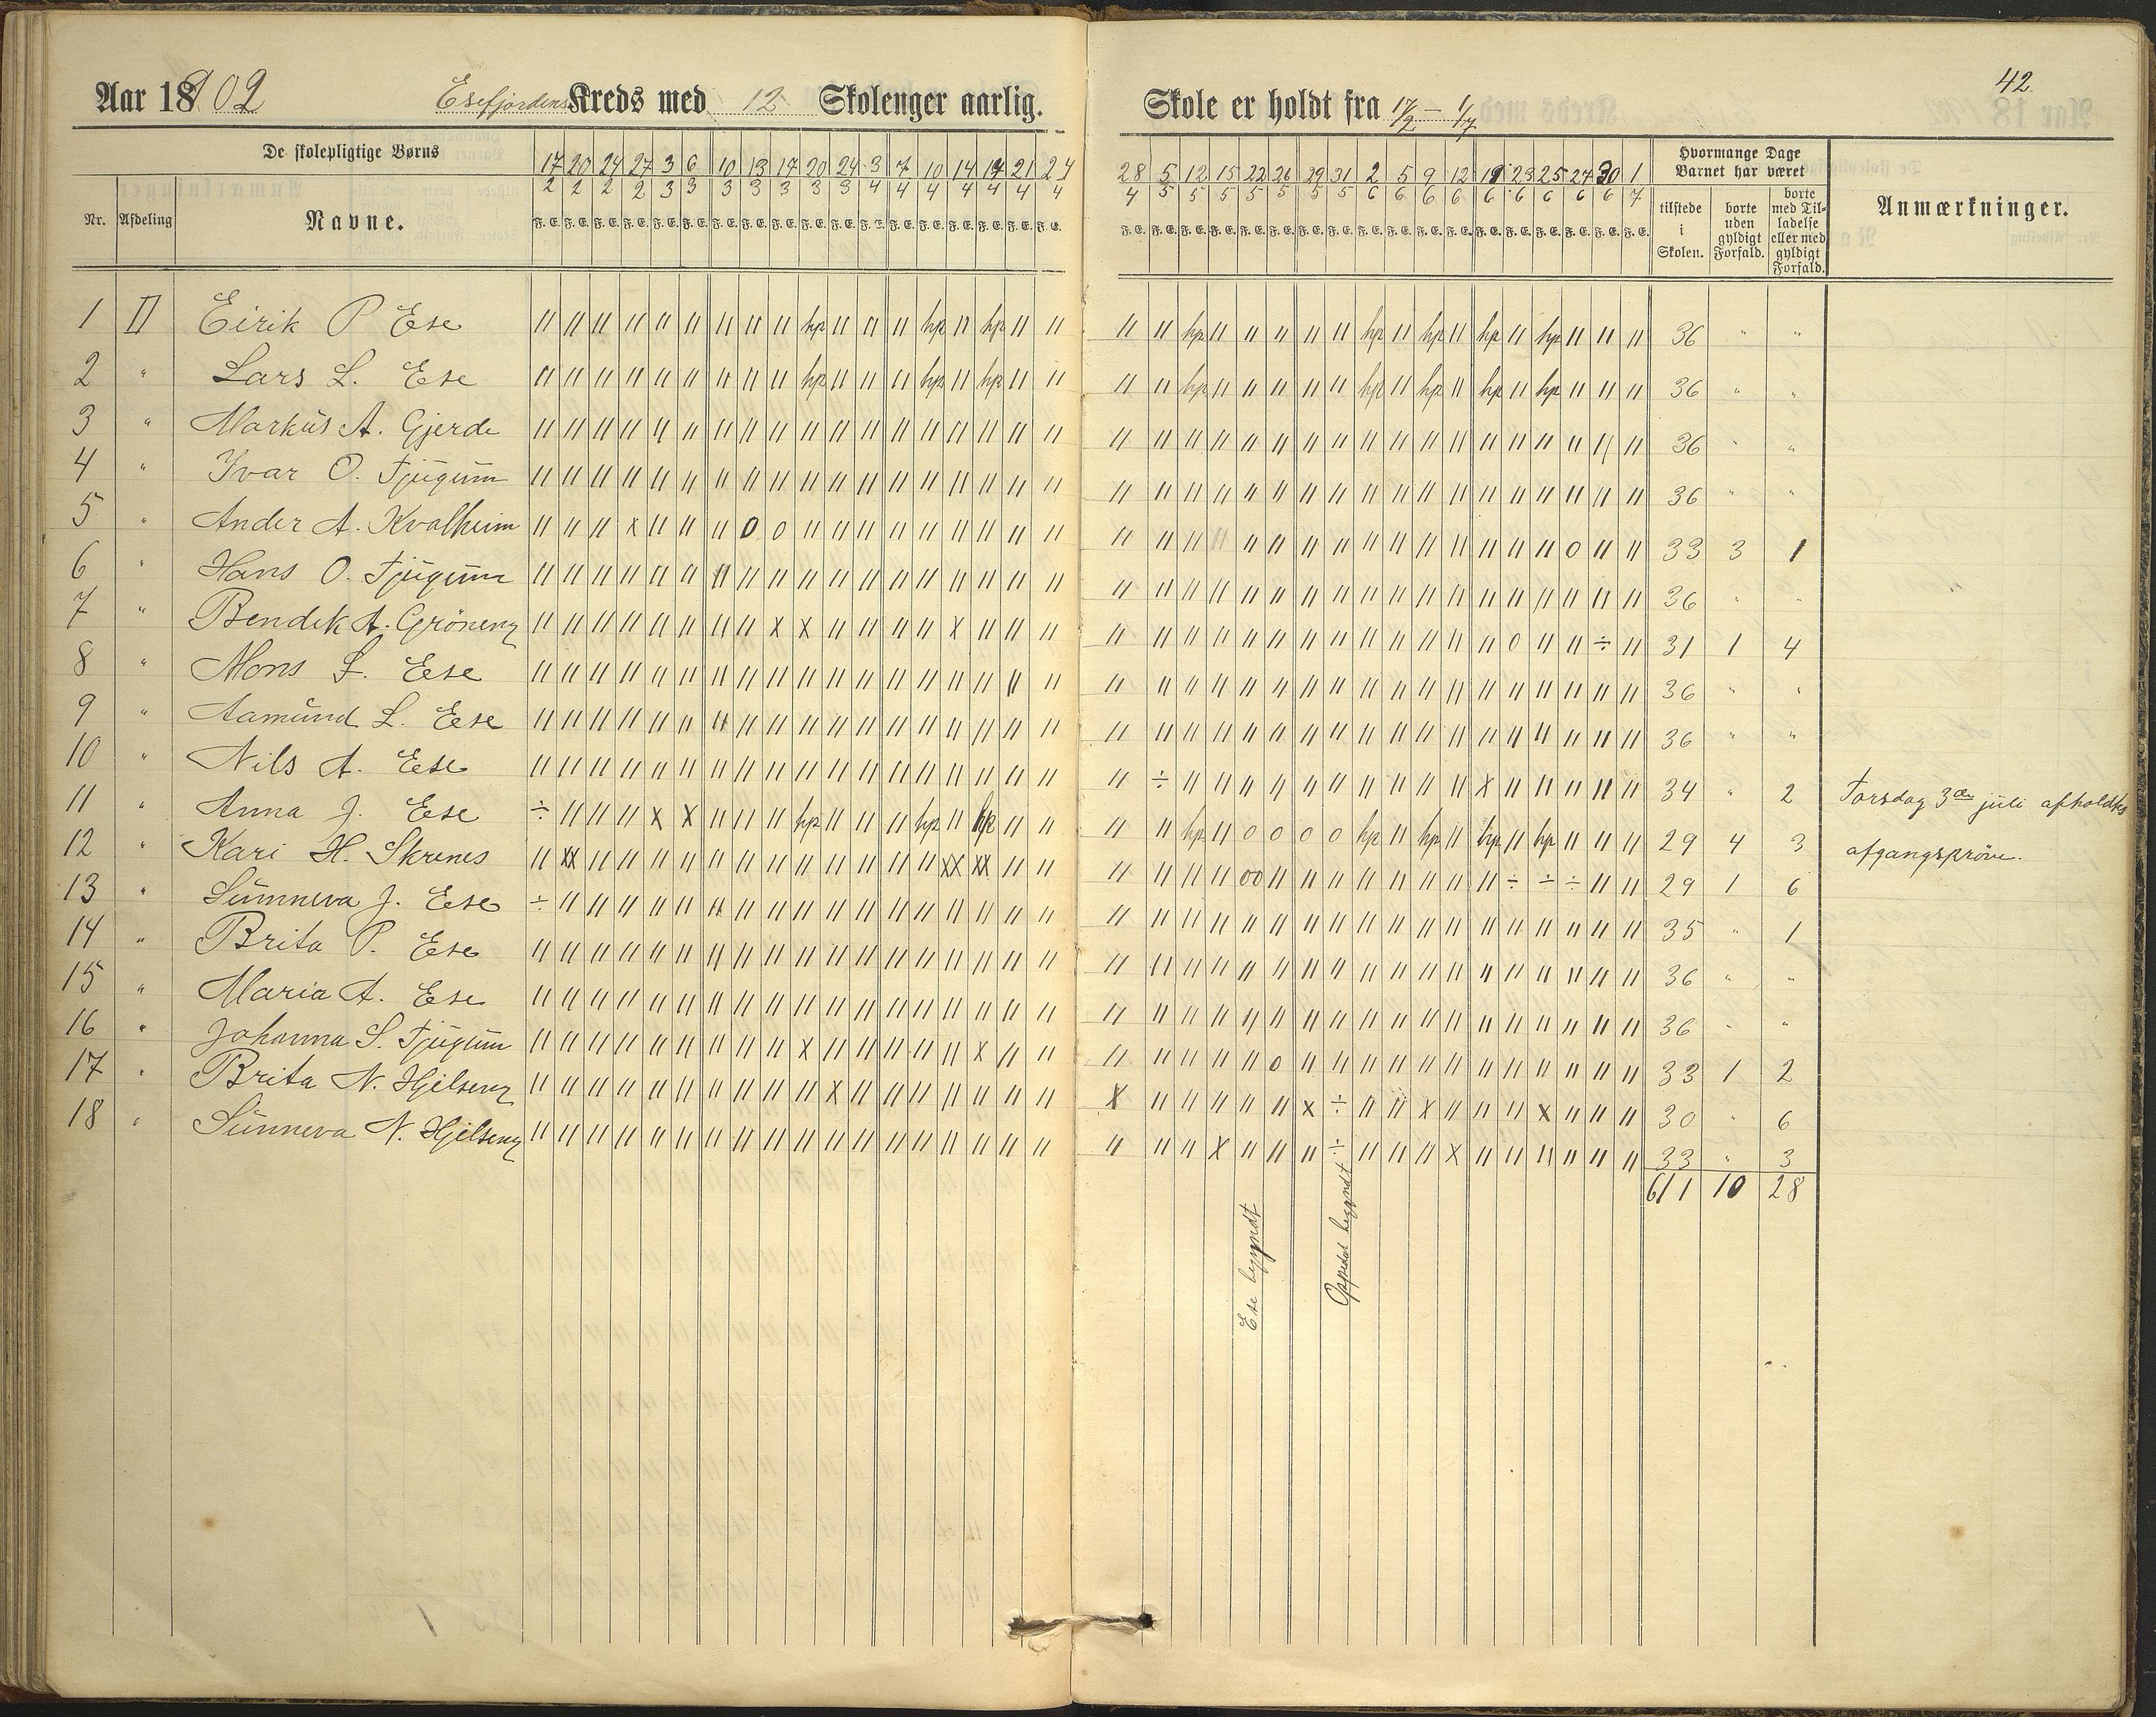 42.
Aar 18902 Esefjordens Kreds med 12 Skolenger aarlig. Skole er holdt fra 17/2 – 1/7
De skolepligtige Børns
Hvormange Dage Barnet har været
Nr. Afdeling Navne.
17/2 20/2 24/2 27/2 3/3 6/3 10/3 13/3 17/3 20/3 24/3 3/4 7/4 10/4 14/4 17/4 21/4 24/4
28/4 5/5 12/5 15/5 22/5 26/5 29/5 31/5 2/6 5/6 9/6 12/6 19/6 23/6 25/6 27/6 30/6 1/7
F. E. F. E. F. E. F. E. F. E. F. E. F. E. F. E. F. E. F. E. F. E. F. E. F. E. F. E. F. E. F. E. F. E. F. E.
F. E. F. E. F. E. F. E. F. E. F. E. F. E. F. E. F. E. F. E. F. E. F. E. F. E. F. E. F. E. F. E. F. E. F. E.
tilstede i Skolen.
borte uden gyldigt Forfald.
borte med Tilladelse eller med gyldigt Forfald.
Anmærkninger.
1 II Eirik P Ese 11 11 11 11 11 11 11 11 11 hp 11 11 11 hp 11 hp 11 11 11 11 hp 11 11 11 11 11 hp 11 hp 11 hp 11 hp 11 11 11 36 " "
2 " Lars L. Ese 11 11 11 11 11 11 11 11 11 hp 11 11 11 hp 11 hp 11 11 11 11 hp 11 11 11 11 11 hp 11 hp 11 hp 11 hp 11 11 11 36 " "
3 " Markus A. Gjerde 11 11 11 11 11 11 11 11 11 11 11 11 11 11 11 11 11 11 11 11 11 11 11 11 11 11 11 11 11 11 11 11 11 11 11 11 36 " "
4 " Ivar O. Fjugum 11 11 11 11 11 11 11 11 11 11 11 11 11 11 11 11 11 11 11 11 11 11 11 11 11 11 11 11 11 11 11 11 11 11 11 11 36 " "
5 " Ander A. Kvalheim 11 11 11 x 11 11 11 0 0 11 11 11 11 11 11 11 11 11 11 11 11 11 11 11 11 11 11 11 11 11 11 11 11 0 11 11 33 3 1
6 " Hans O. Fjugum 11 11 11 11 11 11 11 11 11 11 11 11 11 11 11 11 11 11 11 11 11 11 11 11 11 11 11 11 11 11 11 11 11 11 11 11 36 " "
7 " Bendik A. Gröneng 11 11 11 11 11 11 11 11 x x 11 11 11 11 x 11 11 11 11 11 11 11 11 11 11 11 11 11 11 11 11 0 11 11 ÷ 11 31 1 4
8 " Mons L. Ese 11 11 11 11 11 11 11 11 11 11 11 11 11 11 11 11 11 11 11 11 11 11 11 11 11 11 11 11 11 11 11 11 11 11 11 11 36 " "
9 " Aamund L. Ese 11 11 11 11 11 11 11 11 11 11 11 11 11 11 11 11 11 11 11 11 11 11 11 11 11 11 11 11 11 11 11 11 11 11 11 11 36 " "
10 " Nils A. Ese 11 11 11 11 11 11 11 11 11 11 11 11 11 11 11 11 11 11 11 ÷ 11 11 11 11 11 11 11 11 11 11 x 11 11 11 11 11 34 " 2 Torsdag 3die juli afholdtes
11 " Anna J. Ese ÷ 11 11 11 x x 11 11 11 hp 11 11 11 hp 11 hp 11 11 11 11 hp 11 0 0 0 0 hp 11 hp 11 hp 11 hp 11 11 11 29 4 3 afgangspröve.
12 " Kari H. Skrenes 11 xx 11 11 11 11 11 11 11 11 11 11 11 11 xx xx 11 11 11 11 11 11 00 11 11 11 11 11 11 11 11 ÷ ÷ ÷ 11 11 29 1 6
13 " Sunneva J. Ese ÷ 11 11 11 11 11 11 11 11 11 11 11 11 11 11 11 11 11 11 11 11 11 11 11 11 11 11 11 11 11 11 11 11 11 11 11 35 " 1
14 " Brita P. Ese 11 11 11 11 11 11 11 11 11 11 11 11 11 11 11 11 11 11 11 11 11 11 11 11 11 11 11 11 11 11 11 11 11 11 11 11 36 " "
15 " Maria A. Ese 11 11 11 11 11 11 11 11 11 11 11 11 11 11 11 11 11 11 11 11 11 11 11 11 11 11 11 11 11 11 11 11 11 11 11 11 36 " "
16 " Johanna S. Fjugum 11 11 11 11 11 11 11 11 11 x 11 11 11 11 11 x 11 11 11 11 11 11 11 0 11 11 11 11 11 11 11 11 11 11 11 11 33 1 2
17 " Brita N. Hjelseng 11 11 11 11 11 11 11 11 11 11 x 11 11 11 11 11 11 11 x 11 11 11 11 11 x ÷ 11 11 x 11 11 11 x 11 11 11 30 " 6
18 " Sunneva N. Hjelseng 11 11 11 11 11 11 11 11 11 11 11 11 11 11 11 11 11 11 11 11 11 x 11 11 11 ÷ 11 11 11 x 11 11 11 11 11 11 33 " 3
611 10 28
Ese begyndt
begyndt